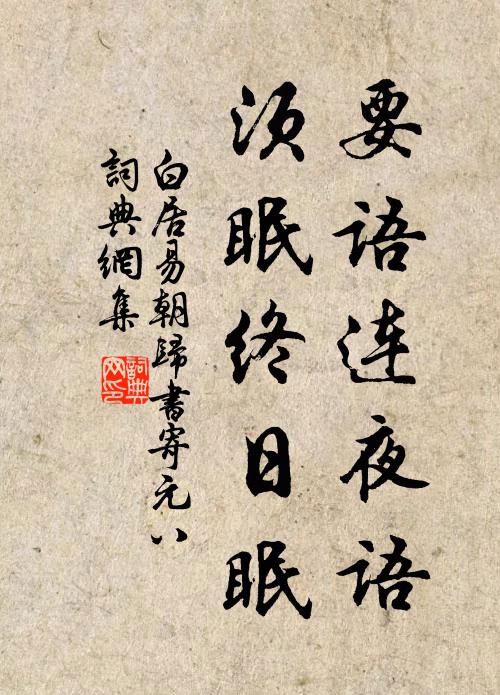 要语连夜语
须眠终日眠
白居易朝歸書寄元八
詞典網集
詞典
网印